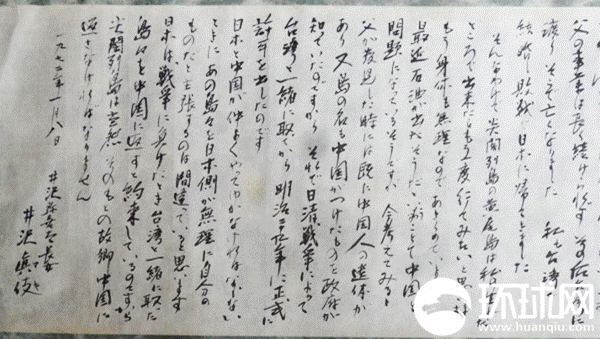 父の事業は長く続けられず
結婚し敗戦 日本に帰って来ました
そんなわけで尖閣列島の黄尾島は私の
ところで出来たたもう一度行てみたいと思
もう身体も無理なのであきらめている
最近石油が出たそうだということで中国
問題になっているそうですが 今考えてみると
父が発見した時には既に中国人の遺体が
あり又島の名も中国がつけたものを政府が
知ていたのですから それが日清戦争によって
台湾と一緒に取てから明治 年に正式に
許可を出したのです
日本と中国が仲よくいってゆかなければならない
ときにあの島々を日本側が無理に自分の
ものだと主張するのは間違っていると思います
日本は、戦争に負けたとき台湾と一緒に取た
島々を中国に返すと約束しているのですから
尖閣列島は当然 そのもの故郷中国に
返さなければなりません
一九七二年一月八日
井沢弥喜太長女
井沢真伎
环球网
www.huanqiu.com